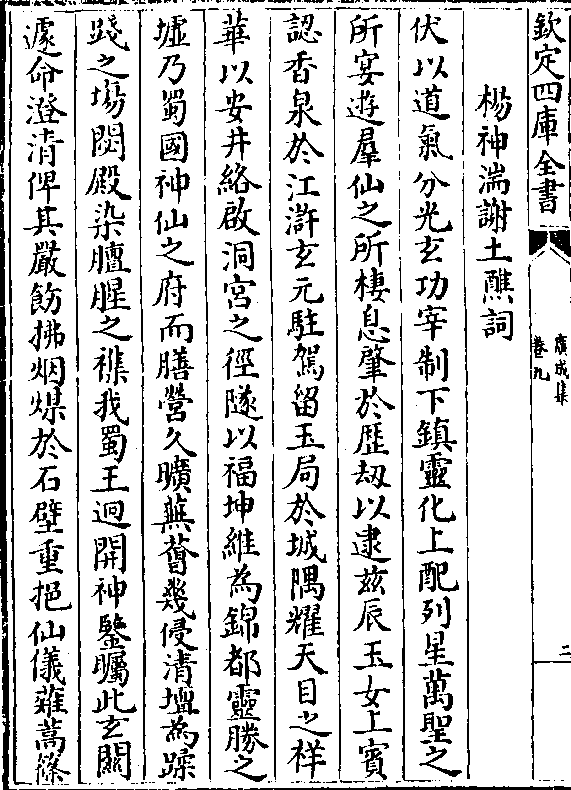 欽定四庫全書
廣成集
卷九
二
楊神湍謝土醮詞
伏以道氣分光玄功宰制下鎮靈化上配列星萬聖之
所宴遊羣仙之所棲息肇於歴刼以逮兹辰玉女上賓
認香泉於江滸玄元駐駕留玉局於城隅耀天目之祥
華以安井絡啟洞宫之徑隧以福坤維為錦都靈勝之
墟乃蜀國神仙之府而膳營久曠蕪薈幾侵清壇為蹂
踐之場閟殿染膻腥之襍我蜀王迥開神鑒矚此玄關
遽命澄清俾其嚴飭拂烟煤於石壁重挹仙儀薙蒿篠